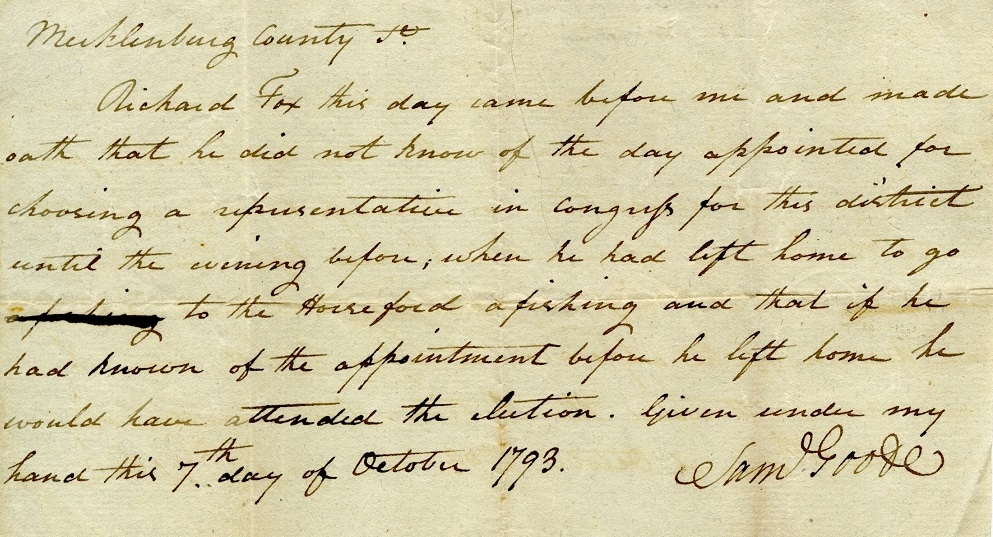 Mecklenburg County Sc.
Richard Fox this day came before me and made
oath that he did not know of the day appointed for
choosing a representative in congress for this district
until the evining before; when he had left home to go
to the Horseford afishing and that if he
had known of the appointment before he left home he
would have attended the election. Given under my
hand this 7.th day of October 1793. Sam.l Goode